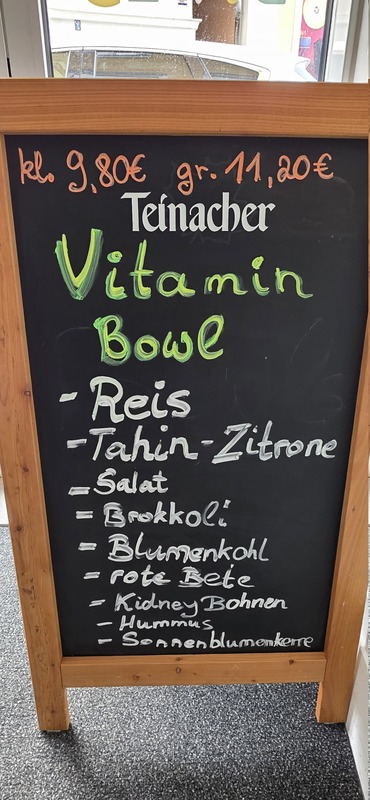 kl. 9,80€ gr. 11,20€
Teinacher
Vitamin
Bowl
- Reis
- Tahin-Zitrone
- Salat
- Brokkoli
- Blumenkohl
- rote Bete
- Kidney Bohnen
- Hummus
- Sonnenblumenkerne